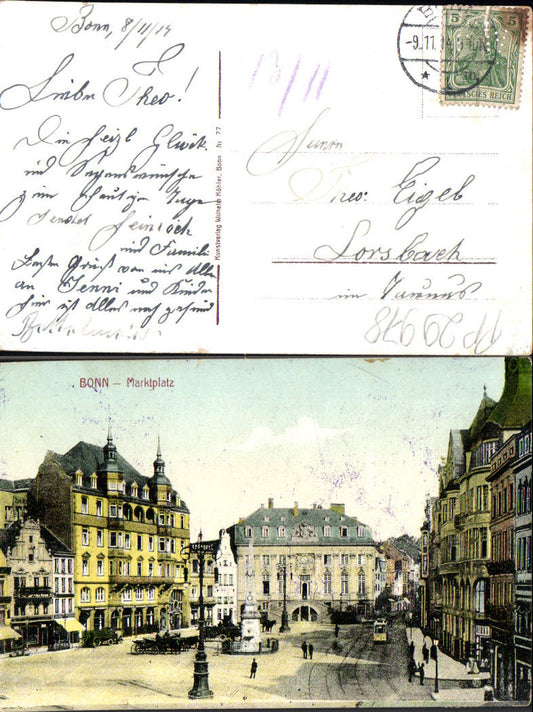 Bonn, 8/11/14
Lieber Theo!
Die herzl. Glück
und Segenswünsche
zum heutigen Tage
sendet Heinrich
und Familie
Besten Gruß von uns Allen
an Jenni und Kinder
hier ist Alles noch gesund
Kunstverlag Wilhelm Köhler, Bonn Nr. 77
13/11
-9.11.
5 5
DEUTSCHES REICH
Herrn
Theo: Eigel
Lorsbach
im Taunus
PP 20 978
BONN — Marktplatz